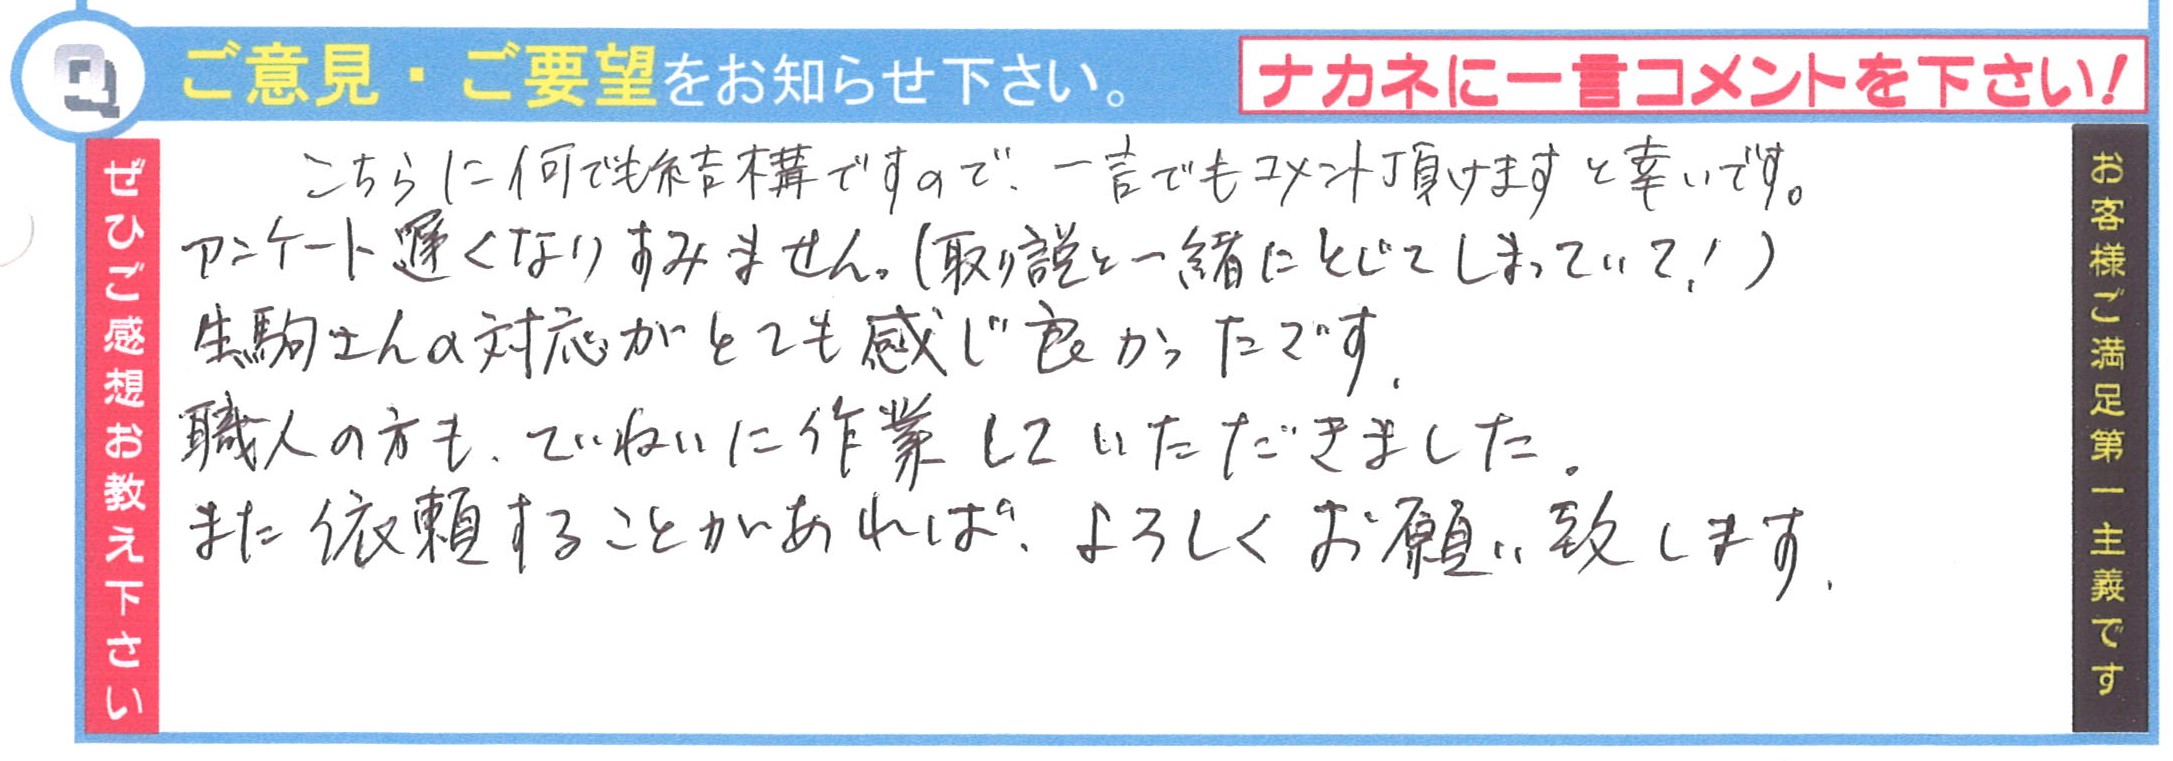 Q ご意見・ご要望をお知らせ下さい。
ナカネに一言コメントを下さい!
ぜひご感想お教え下さい
こちらに何でも結構ですので、一言でもコメント頂けますと幸いです。
アンケート遅くなりすみません。(取り説と一緒にとじてしまっていて!)
生駒さんの対応がとても感じ良かったです.
職人の方も、ていねいに作業していただきました。
また依頼することがあれば、よろしくお願い致します.
お客様ご満足第一主義です